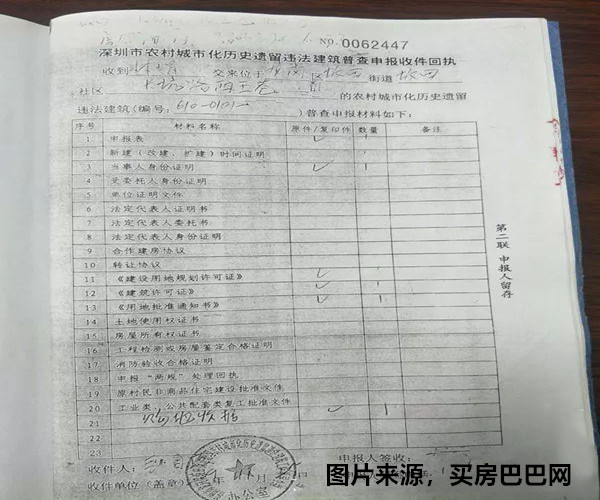 NO. 0062447
深圳市农村城市化历史遗留违法建筑普查申报收件回执
收到 交来位于 区坂田 街道 坂田
社区 的农村城市化历史遗留
违法建筑(编号: 610-0101- )普查申报材料如下:
序号 材料名称 原件/复印件 数量 备注
1 申报表 ✓ 1
2 新建(改建、扩建)时间证明
3 当事人身份证明 ✓ 1
4 受委托人身份证明
5 单位证明文件
6 法定代表人证明书
7 法定代表人委托书
8 法定代表人身份证明
9 合作建房协议
10 转让协议
11 《建设用地规划许可证》 ✓ 1
12 《建筑许可证》 ✓ 1
13 《用地批准通知书》 ✓ 1
14 土地使用权证书
15 房屋所有权证书
16 工程检测或房屋鉴定合格证明
17 消防验收合格证明
18 申报“两规”处理回执
19 原村民非商品住宅建设批准文件
20 工业类、公共配套类复工批准文件
21 收据 ✓ 1
22
23
收件人: 申报人签收:
收件单位(盖章) 年 月 日 电话:
办公室
第二联 申报人留存
图片来源,买房巴巴网